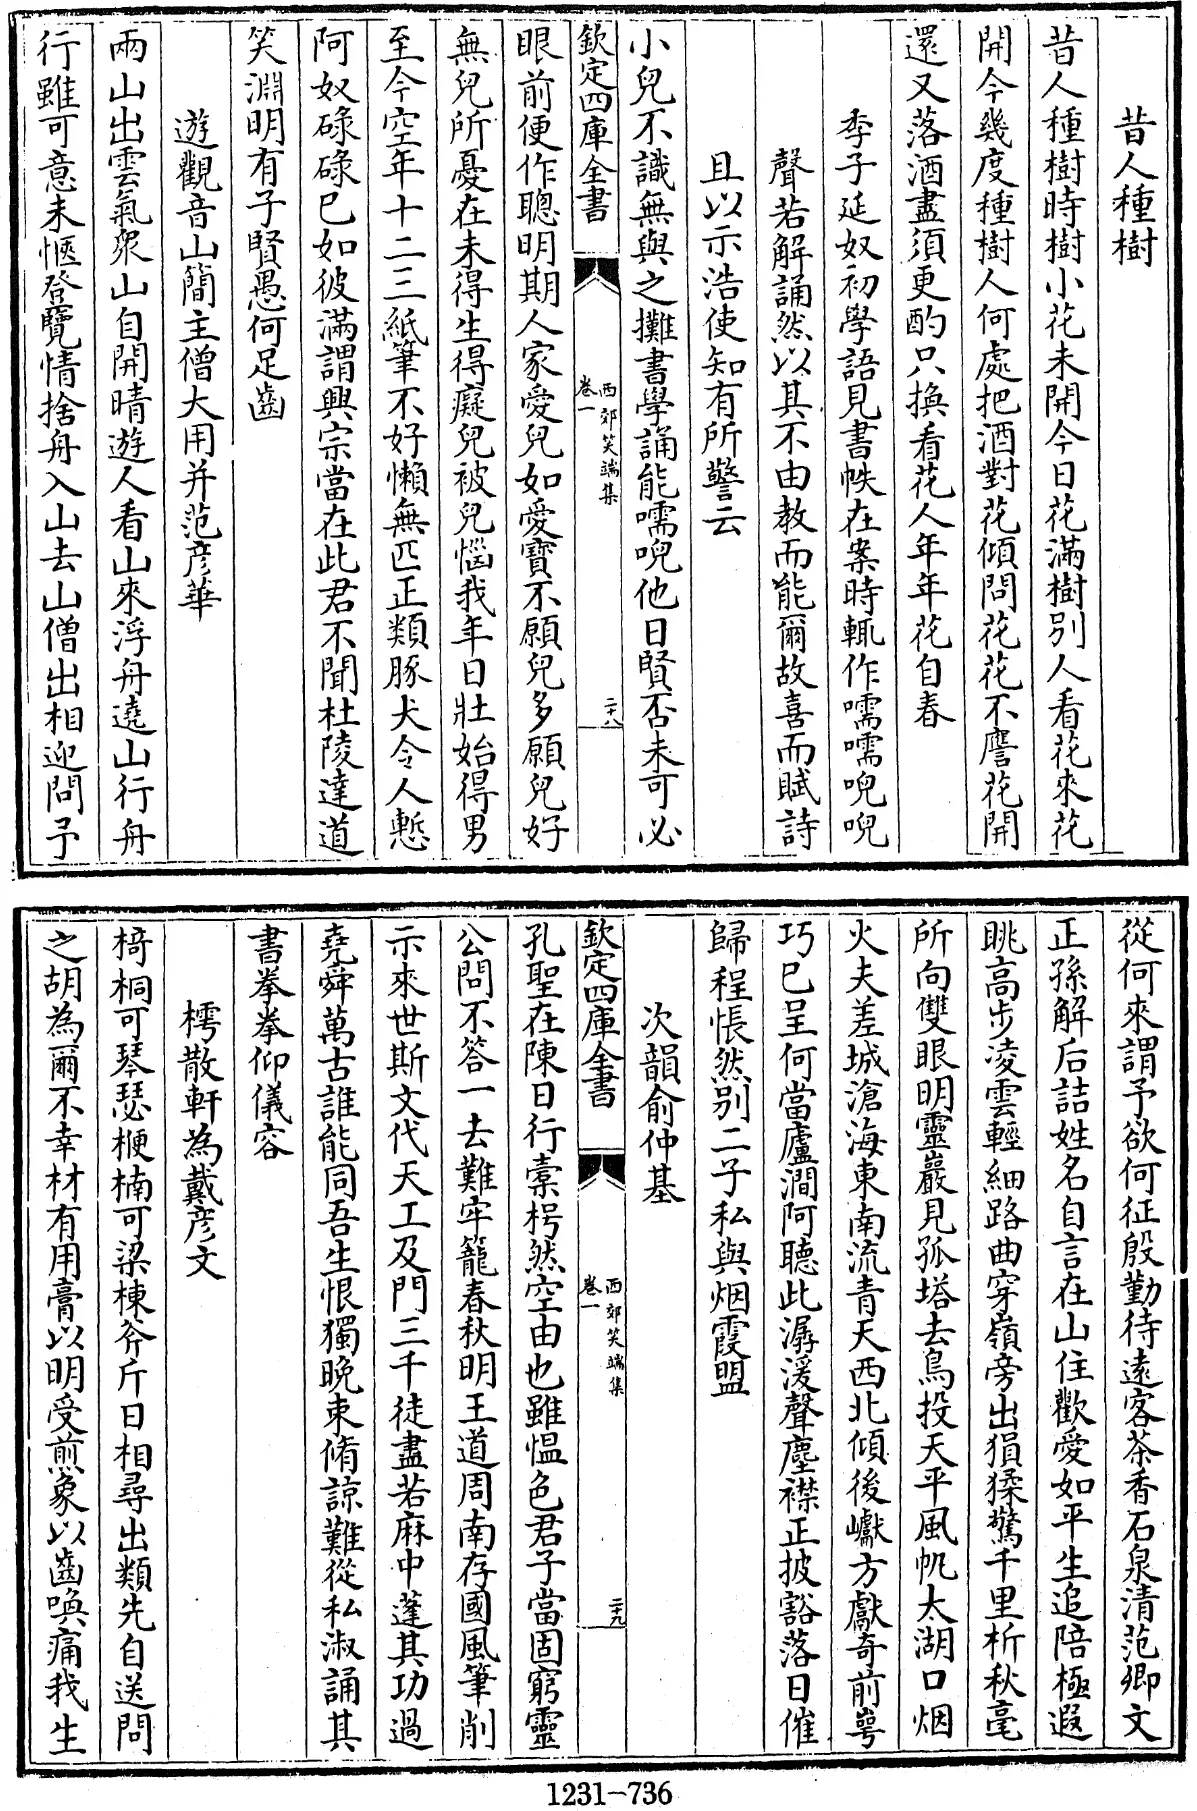 昔人種樹
昔人種樹時樹小花未開今日花滿樹別人看花來花
開今幾度種樹人何處把酒對花傾問花花不譍花開
還又落酒盡須更酌只換看花人年年花自春
季子延奴初學語見書帙在案時輒作嚅嚅唲唲
聲若解誦然以其不由教而能爾故喜而賦詩
且以示浩使知有所警云
小兒不識無與之攤書學誦能嚅唲他日賢否未可必
欽定四庫全書
西郊笑端集
卷一
二十八
眼前便作聰明期人家愛兒如愛寶不願兒多願兒好
無兒所憂在未得生得癡兒被兒惱我年日壯始得男
至今空年十二三紙筆不好懶無匹正類豚犬令人慙
阿奴碌碌已如彼滿謂興宗當在此君不聞杜陵達道
笑淵明有子賢愚何足齒
遊觀音山簡主僧大用并范彦華
兩山出雲氣衆山自開晴遊人看山來浮舟遶山行舟
行雖可意未愜登覽情捨舟入山去山僧出相迎問予
從何來謂予欲何征殷勤待遠客茶香石泉清范卿文
正孫解后詰姓名自言在山住歡愛如平生追陪極遐
眺高步凌雲輕細路曲穿嶺旁出猿猱驚千里析秋毫
所向雙眼明靈巖見孤塔去鳥投天平風帆太湖口烟
火夫差城滄海東南流青天西北傾後巘方獻奇前崿
巧已呈何當廬澗阿聽此潺湲聲塵襟正披豁落日催
歸程悵然別二子私與烟霞盟
次韻俞仲基
欽定四庫全書
西郊笑端集
卷一
二十九
孔聖在陳日行橐枵然空由也雖愠色君子當固窮靈
公問不答一去難牢籠春秋明王道周南存國風筆削
示來世斯文代天工及門三千徒盡若麻中蓬其功過
堯舜萬古誰能同吾生恨獨晚束脩諒難從私淑誦其
書拳拳仰儀容
樗散軒為戴彦文
椅桐可琴瑟楩楠可梁棟斧斤日相尋出類先自送問
之胡為爾不幸材有用膏以明受煎象以齒喚痛我生
1231-736